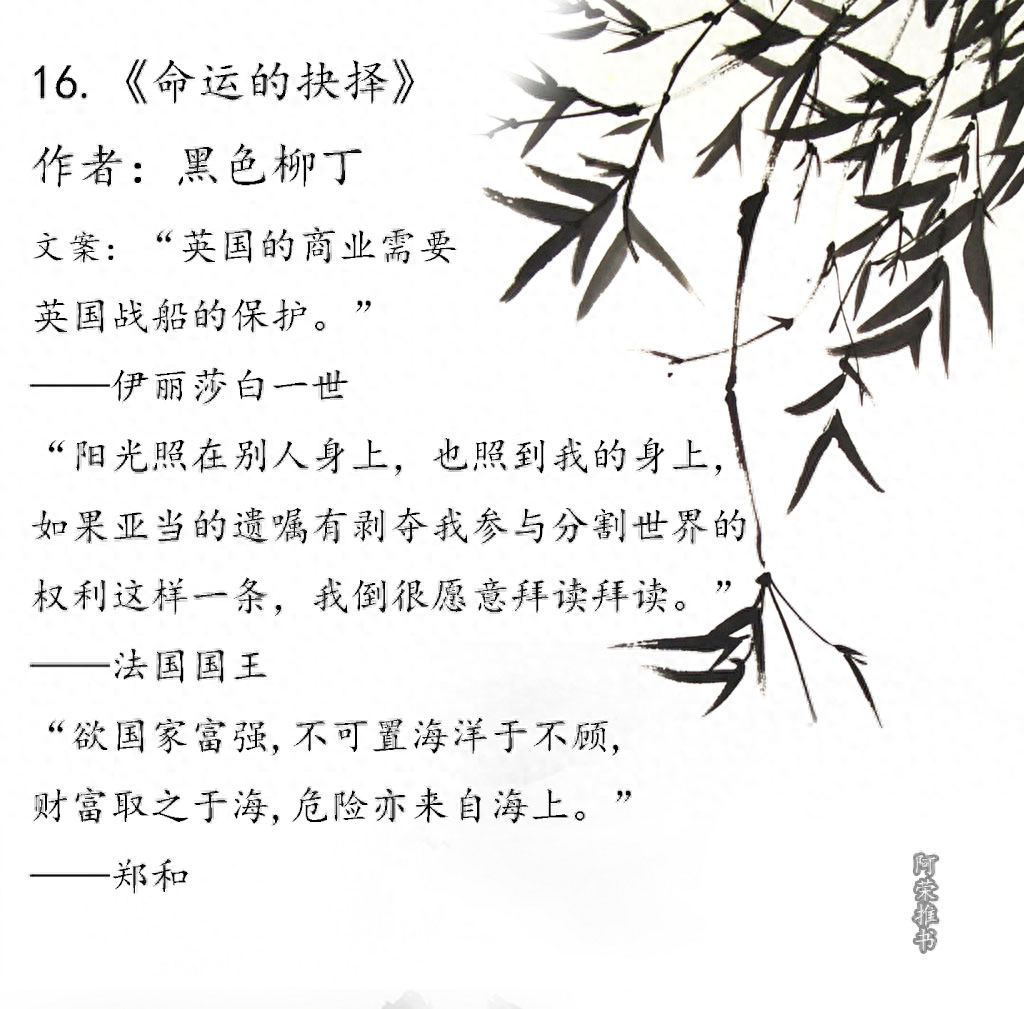 16.《命运的抉择》
作者：黑色柳丁
文案：“英国的商业需要
英国战船的保护。”
——伊丽莎白一世
“阳光照在别人身上，也照到我的身上，
如果亚当的遗嘱有剥夺我参与分割世界的
权利这样一条，我倒很愿意拜读拜读。”
——法国国王
“欲国家富强,不可置海洋于不顾,
财富取之于海,危险亦来自海上。”
——郑和
阿荣推书